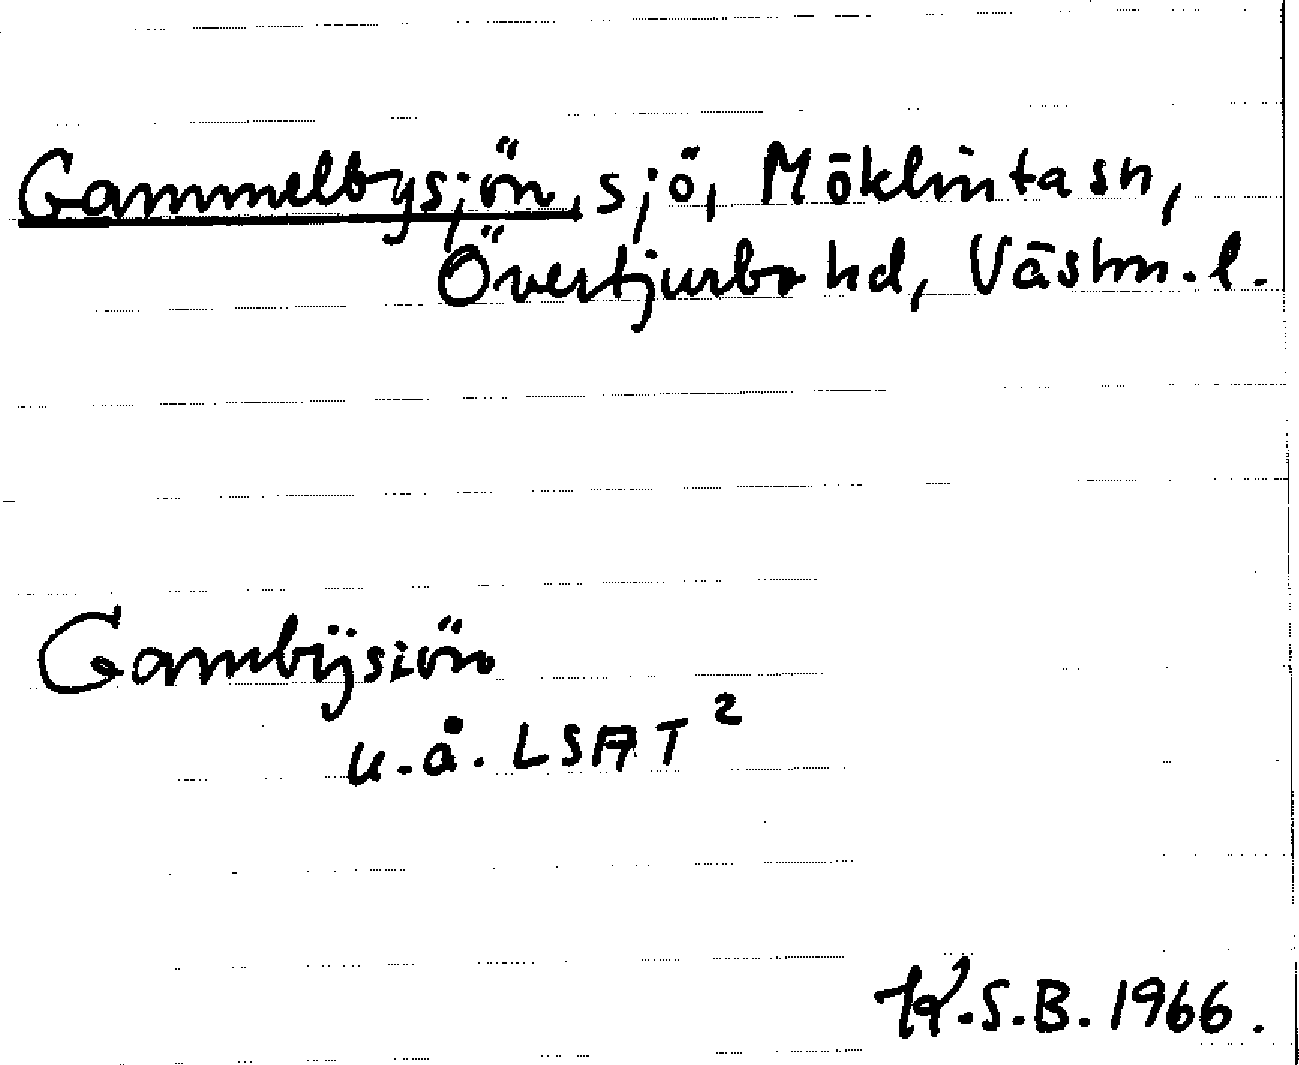 Gammelbysjön, sjö, Möklinta sn,
Övertjurbo hd, Västm. l.
Gambÿsiön
u.å. LSA T²
K.S.B. 1966.